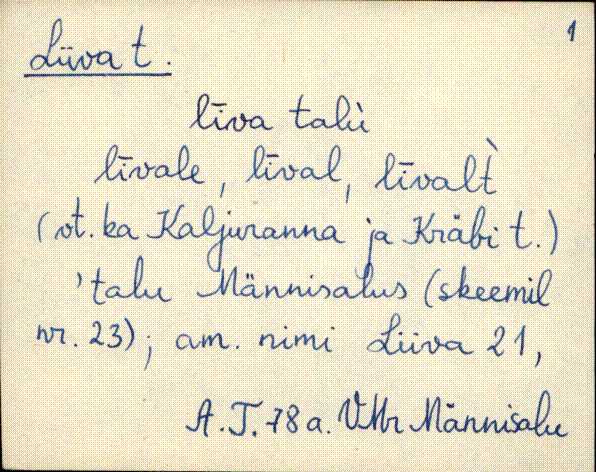 1
Liiva t.
līva talù
līvale, līval, līvalt̀
(vt. ka Kaljuranna ja Kräbi t.)
'talu Männisalus (skeemil
nr. 23); am. nimi Liiva 21,
A.T. 78 a. VMr Männisalu